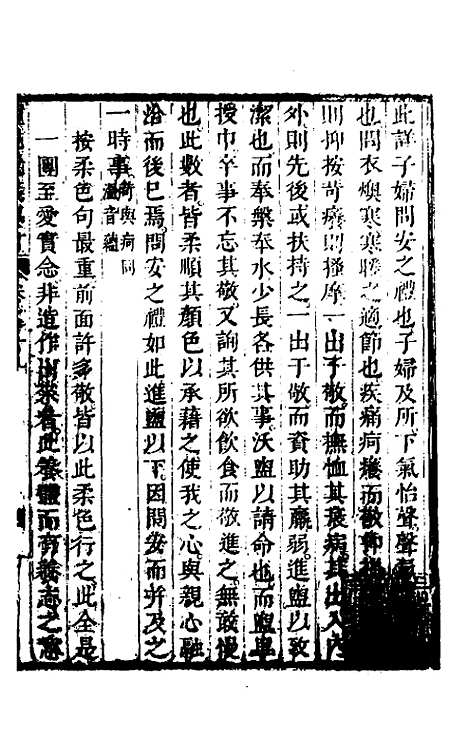 此詳子婦問安之禮也子婦及所下氣怡聲聲
也問衣燠寒寒暖之適節也疾痛疴癢而敬抑搔
則抑按苛癢則搔摩一出于敬而撫恤其衰病其出入內
外則先後或扶持之一出于敬而資助其羸弱進盥以致
潔也而奉槃奉水少長各供其事沃盥以請命也而盥卒
授巾卒事不忘其敬又詢其所欲飲食而敬進之無敢慢
也此數者皆柔順其顏色以承藉之使我之心與親心融
洽而後已焉問安之禮如此進盥以下因問安而并及之
一時事
按柔色句最重前面許多敬皆以此柔色行之此全是
一團至愛實念非造作出來者此養體而有養志之意